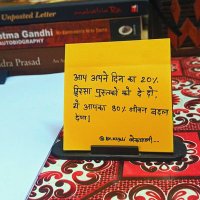 Unposted Letter
Mahatria Ra
atma Gandhi
AUTOBIOGRAPHY
ndra Prasad
आप अपने दिन का 20%
हिस्सा पुस्तकों को दे दो,
ये आपका 80% जीवन बदल
देगा।